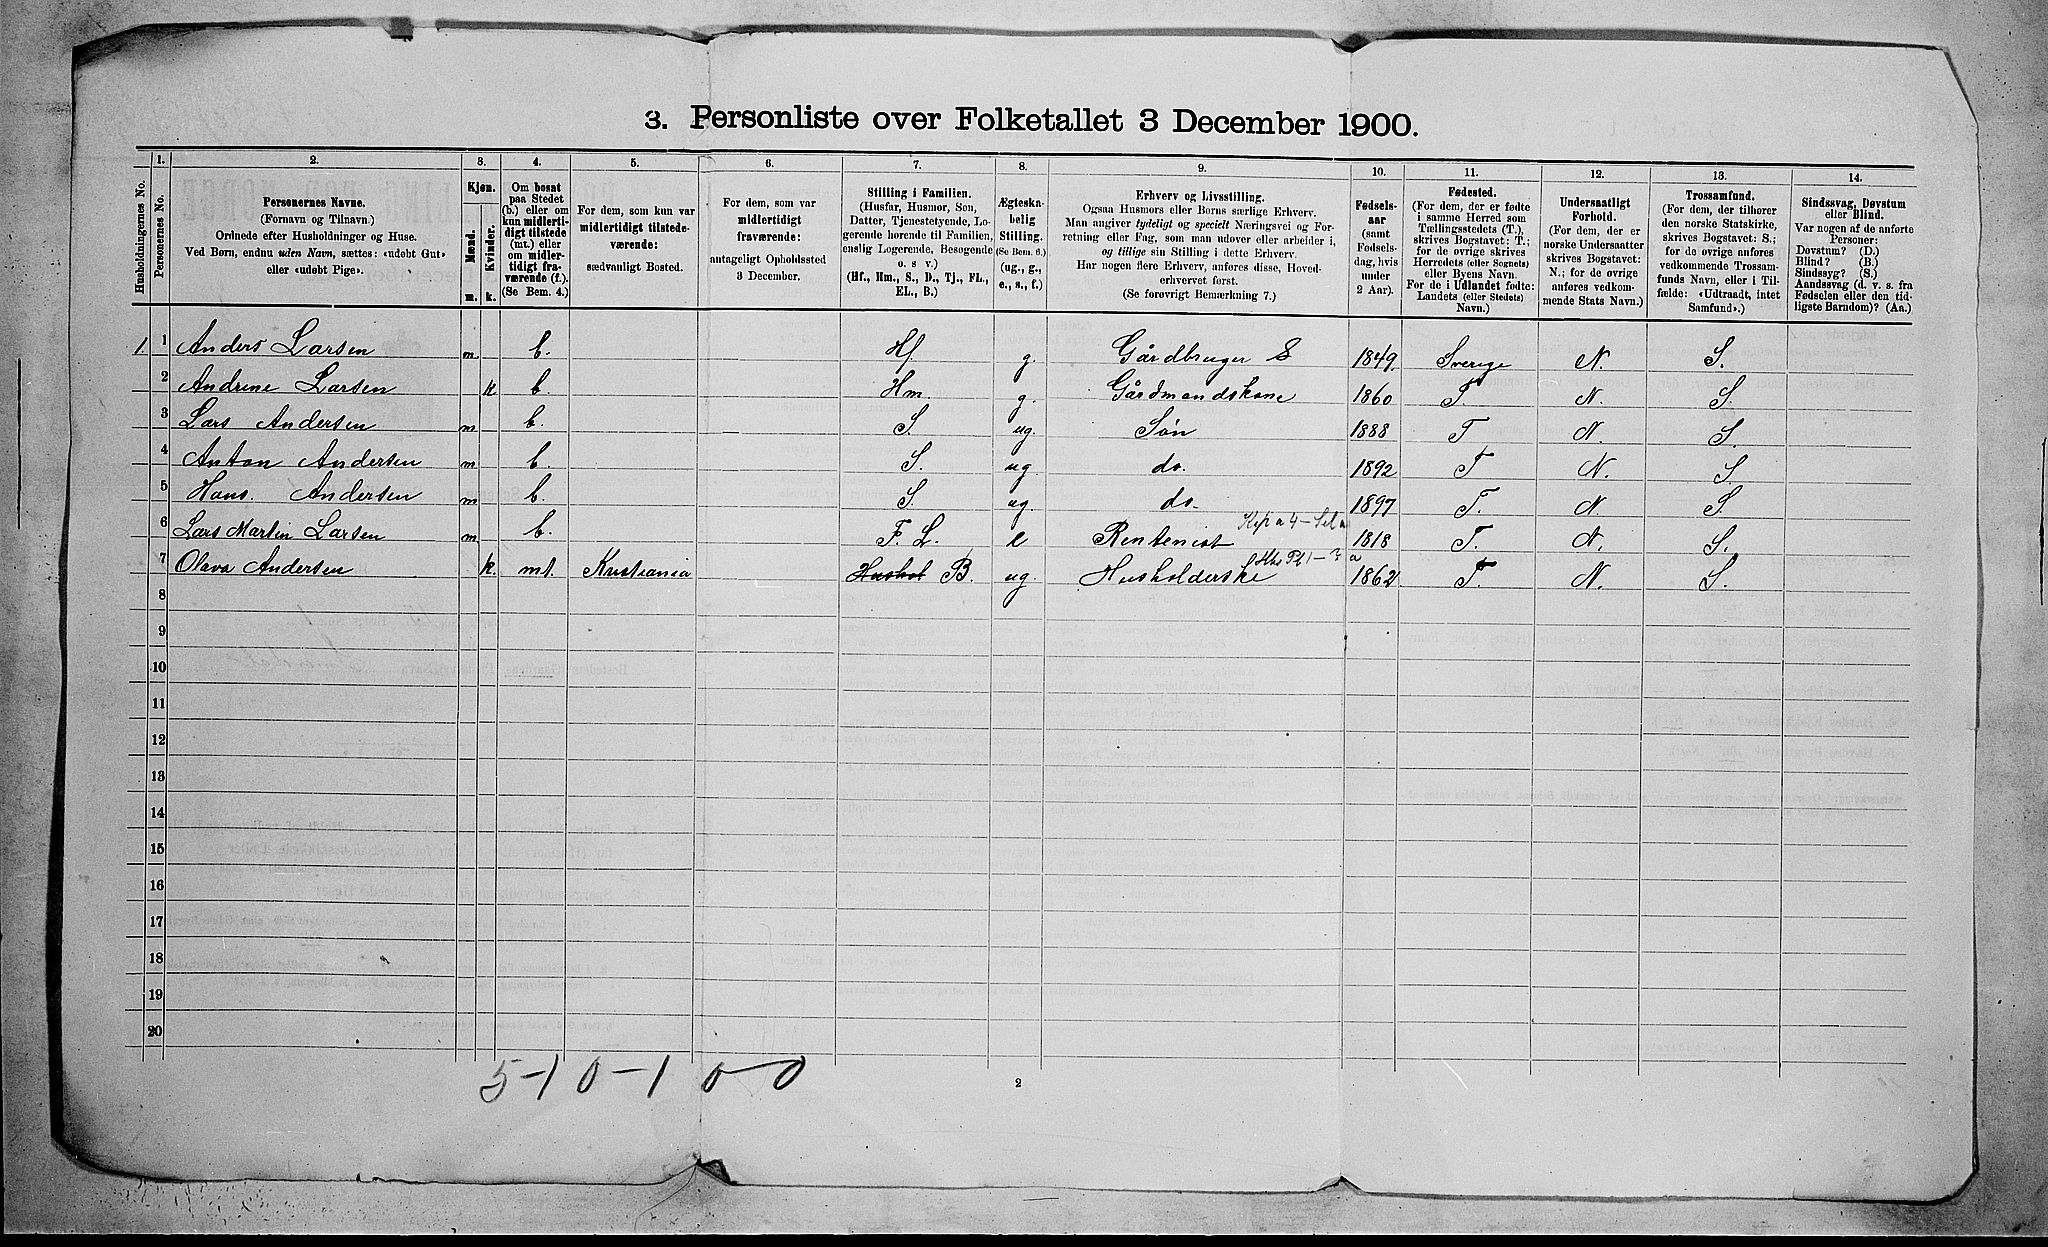 3. Personliste over Folketallet 3 December 1900.
Husholdningernes No.
1. Personernes No.
2. Personernes Navne. (Fornavn og Tilnavn.) Ordnede efter Husholdninger og Huse. Ved Børn, endnu uden Navn, sættes: «udøbt Gut» eller «udøbt Pige».
3. Kjøn. Mænd. m. Kvinder. k.
4. Om bosat paa Stedet (b.) eller om kun midlertidigt tilstede (mt.) eller om midlertidigt fraværende (f.). (Se Bem. 4.)
5. For dem, som kun var midlertidigt tilstedeværende: sædvanligt Bosted.
6. For dem, som var midlertidigt fraværende: antageligt Opholdssted 3 December.
7. Stilling i Familien. (Husfar, Husmor, Søn, Datter, Tjenestetyende, Logerende hørende til Familien, enslig Logerende, Besøgende o. s v.) (Hf., Hm., S., D., Tj., FL., EL., B.)
8. Ægteskabelig Stilling. (Se Bem. 6.) (ug., g., e., s., f.)
9. Erhverv og Livsstilling. Ogsaa Husmors eller Børns særlige Erhverv. Man angiver tydeligt og specielt Næringsvei og Forretning eller Fag, som man udover eller arbeider i, og tillige sin Stilling i dette Erhverv. Har nogen flere Erhverv, anføres disse, Hovederhvervet først. (Se forøvrigt Bemærkning 7.)
10. Fødselsaar (samt Fødselsdag, hvis under 2 Aar).
11. Fødested. (For dem, der er fødte i samme Herred som Tællingsstedets (T.), skrives Bogstavet: T.; for de øvrige skrives Herredets (eller Sognets) eller Byens Navn. For de i Udlandet fødte: Landets (eller Stedets) Navn.)
12. Undersaatligt Forhold. (For dem, der er norske Undersaatter skrives Bogstavet: N.; for de øvrige anføres vedkommende Stats Navn.)
13. Trossamfund. (For dem, der tilhører den norske Statskirke, skrives Bogstavet: S.; for de øvrige anføres vedkommende Trossamfunds Navn, eller i Tilfælde: «Udtraadt, intet Samfund».)
14. Sindssvag, Døvstum eller Blind. Var nogen af de anførte Personer: Døvstum? (D.) Blind? (B.) Sindssyg? (S.) Aandssvag (d. v. s. fra Fødselen eller den tidligste Barndom)? (Aa.)
1. 1 Anders Larsen m b. Hf. g. Gårdbruger S 1849. Sverige N. S.
2 Andrine Larsen k b. Hm. g. Gårdmandskone 1860 T. N. S.
3 Lars Andersen m b. S. ug. Søn 1888 T N. S.
4 Anton Andersen m b. S. ug. do. 1892 T N. S.
5 Hans. Andersen m b. S. ug. do. 1897 T. N. S
6 Lars Martin Larsen m b. F. L. e Rentenist 1818 T. N. S.
7 Olava Andersen k. mt. Kristiania Hushol B. ug. Husholderske 1862 T. N. S.
8
9
10
11
12
13
14
15
16
17
18
19
20
5-1 0-1 0-0
2